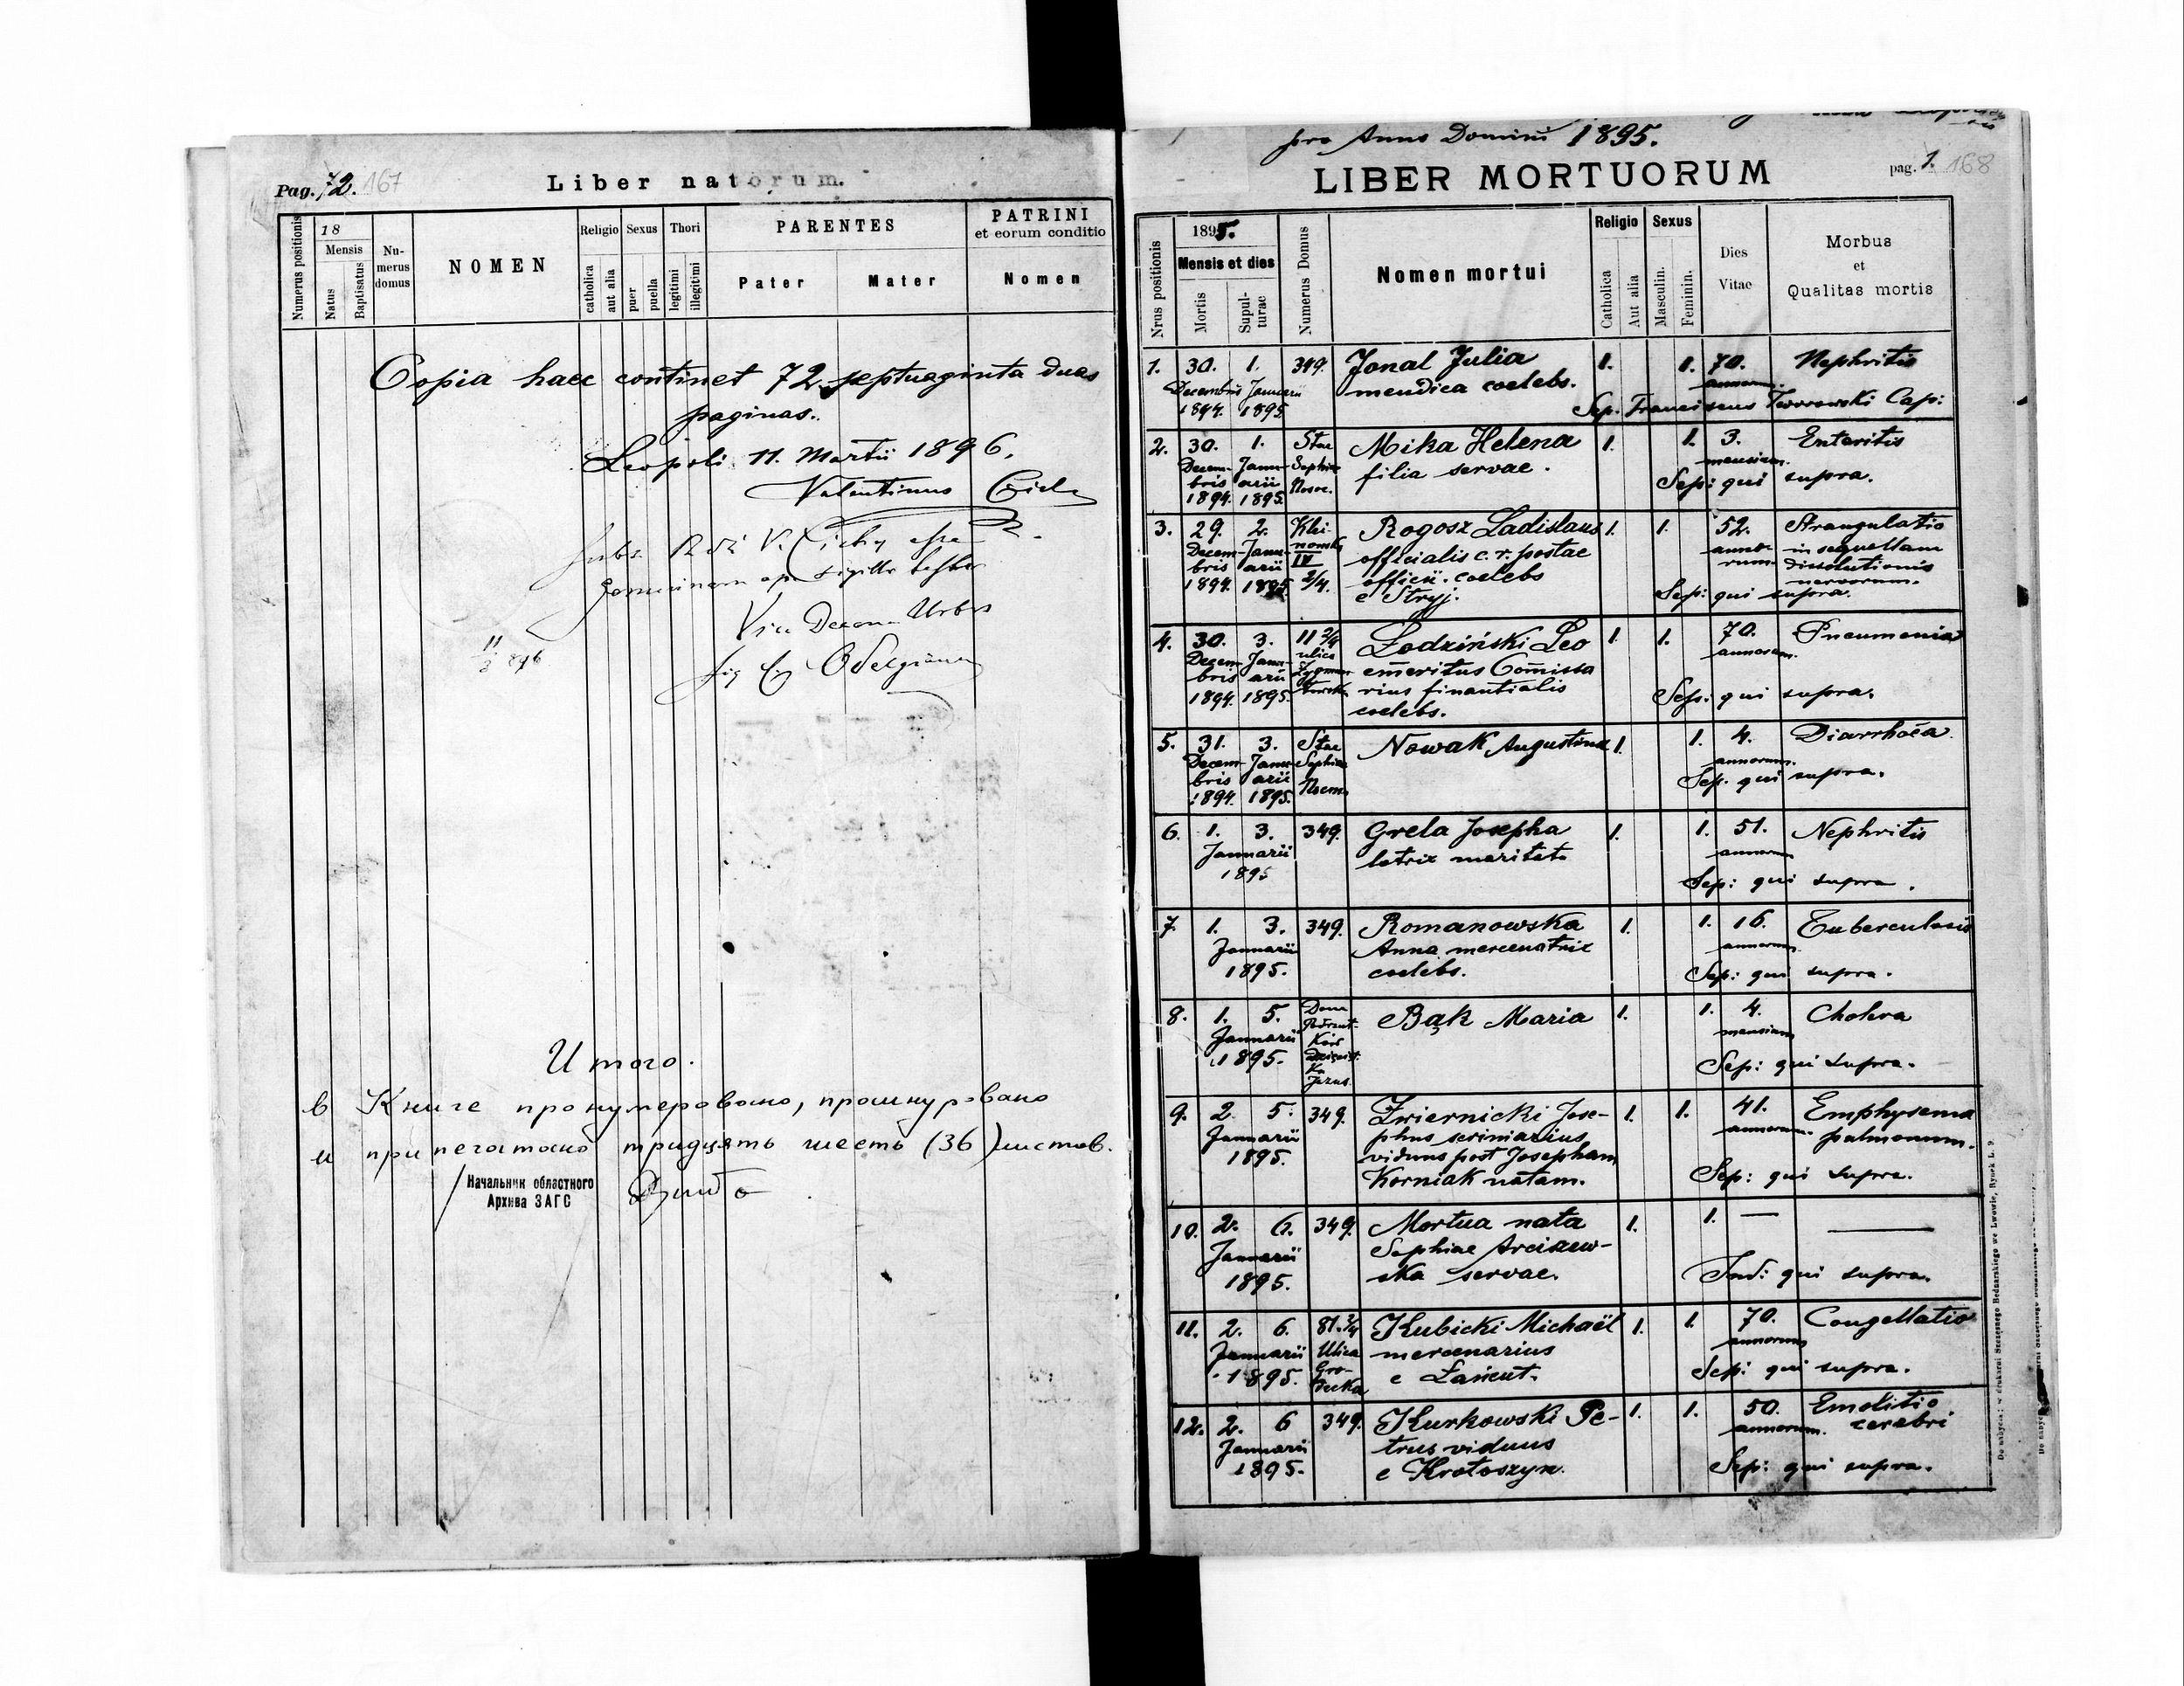 Pag. 72. 167
Liber natorum.
Numerus positionis
18
Mensis
Natus
Baptisatus
Nu-
merus
domus
NOMEN
Religio
catholica
aut alia
Sexus
puer
puella
Thori
legitimi
illegitimi
PARENTES
Pater
Mater
PATRINI
et eorum conditio
Nomen
Copia haec continet 72 septuaginta duas
paginas.
Leopoli 11. Martii 1896.
Valentinus
Vice Decan Urbis
11
3 896
Итого.
в Книге пронумеровано, прошнуровано
и припечатано тридцять шесть (36) листов.
Начальник областного
Архива ЗАГС
pro Anno Domini 1895.
LIBER MORTUORUM
pag. 1. 168
Nrus positionis
1895.
Mensis et dies
Mortis
Supul-
turae
Numerus Domus
Nomen mortui
Religio
Catholica
Aut alia
Sexus
Masculin.
Feminin.
Dies
Vitae
Morbus
et
Qualitas mortis
1. 30. 1. 349. Jonal Julia 1. 1. 70. Nephritis
Decembris Januarii mendica coelebs. annorum.
1894. 1895. Sep. Franciscus Tworowski Cap:
2. 30. 1. Stae Mika Helena 1. 1. 3. Enteritis
Decem- Janu- Sophiae filia servae. mensium.
bris arii Nosoc. Sep: qui supra.
1894. 1895.
3. 29. 2. Rogosz Ladislaus 1. 1. 52. Strangulatio
Decem- Janu- officialis c. r. postae anno- in sequellam
bris arii IV officii. coelebs rum dissolutionis
1894. 1895. 2/4. e Stryj. nervorum.
Sep: qui supra.
4. 30. 3. 11 2/4 Łodziński Leo 1. 1. 70. Pneumonia
Decem- Janu- ulica emeritus Comissa annorum.
bris arii rius finantialis
1894. 1895. coelebs. Sep: qui supra.
5. 31. 3. Stae Nowak Augustina 1. 1. 4. Diarrhoea
Decem- Janu- Sophiae annorum.
bris arii Sep. qui supra.
1894. 1895.
6. 1. 3. 349. Grela Josepha 1. 1. 51. Nephritis
Januarii lotrix maritat. annorum
1895 Sep: qui supra.
7. 1. 3. 349. Romanowska 1. 1. 16. Tuberculosis
Januarii Anna mercenatrix annorum.
1895. coelebs. Sep: qui supra.
8. 1. 5. Dom Bąk Maria 1. 1. 4. Cholera
Januarii mensium
1895. Jezus. Sep: qui supra.
9. 2. 5. 349. Zwiernicki Jose- 1. 1. 41. Emphysema
Januarii phus scriniarius annorum. pulmonum.
1895. viduus post Josepham
Korniak natam. Sep: qui supra.
10. 2. 6. 349. Mortua nata 1. 1. —
Januarii Sophiae Arciszew-
1895. ska servae. Ind: qui supra.
11. 2. 6. 81. 3/4 Kubicki Michaël 1. 1. 70. Congellatio
Januarii Ulica mercenarius annorum
1895. Gro- e Łańcut. Sep: qui supra.
decka
12. 2. 6 349. Kurkowski Pe- 1. 1. 50. Emolitio
Januarii trus viduus annorum. cerebri
1895. e Krotoszyn. Sep: qui supra.
Do nabycia: w drukarni Szczęsnego Bednarskiego we Lwowie, Rynek L. 9.